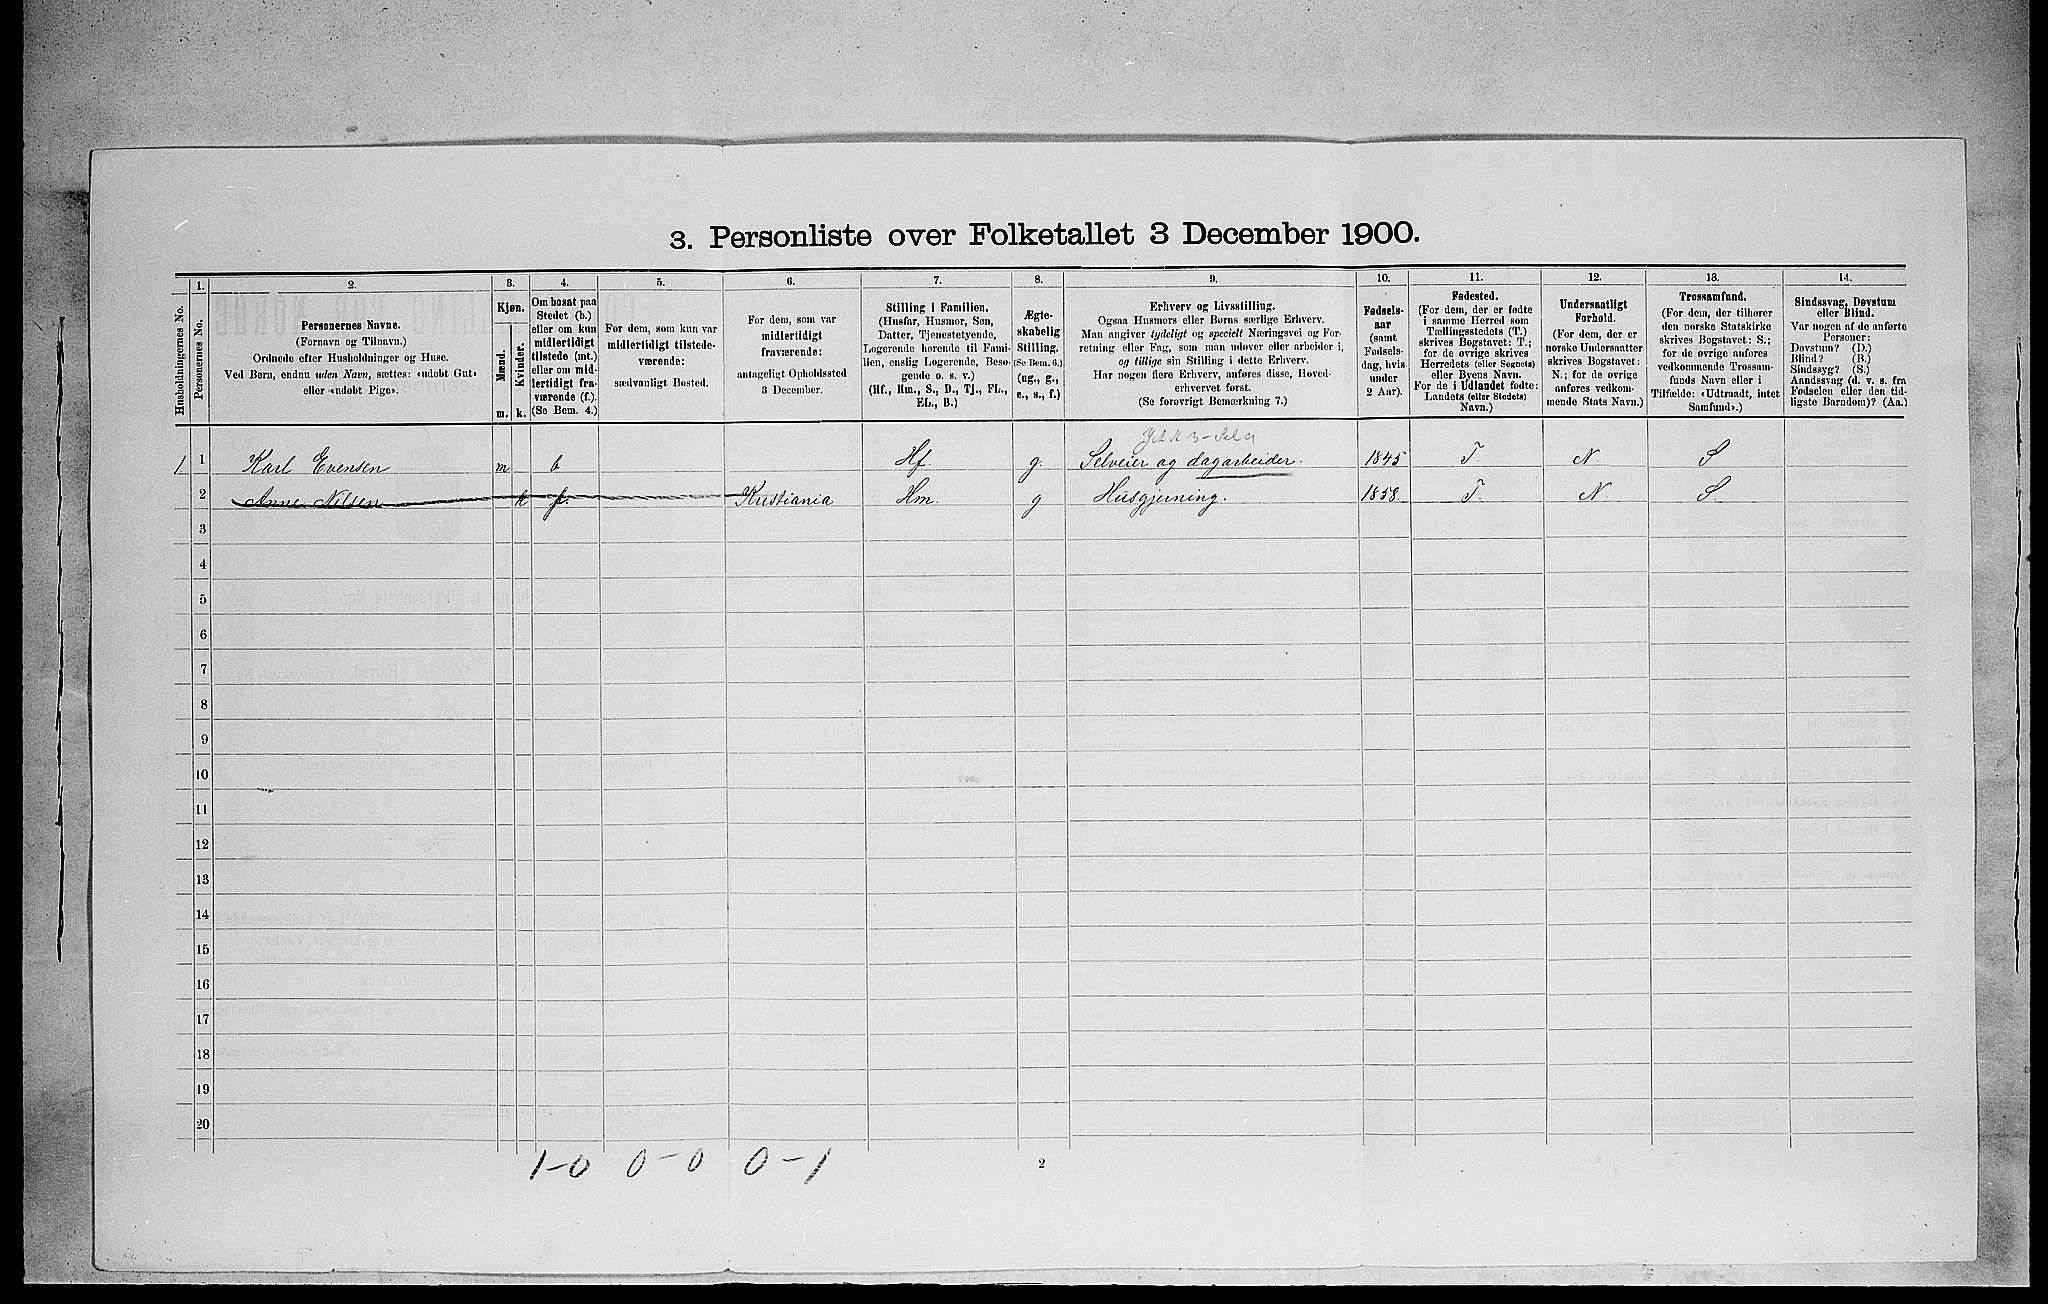 3. Personliste over Folketallet 3 December 1900.
Husholdningernes No.
1.
Personernes No.
2.
Personernes Navne.
(Fornavn og Tilnavn.)
Ordnede efter Husholdninger og Huse.
Ved Børn, endnu uden Navn, sættes: «udøbt Gut»
eller «udøbt Pige».
3.
Kjøn.
Mænd.
Kvinder.
m.
k.
4.
Om bosat paa
Stedet (b.)
eller om kun
midlertidigt
tilstede (mt.)
eller om mid-
lertidigt fra-
værende (f.).
(Se Bem. 4.)
5.
For dem, som kun var
midlertidigt tilstede-
værende:
sædvanligt Bosted.
6.
For dem, som var
midlertidigt
fraværende:
antageligt Opholdssted
3 December.
7.
Stilling i Familien.
(Husfar, Husmor, Søn,
Datter, Tjenestetyende,
Logerende hørende til Fami-
lien, enslig Logerende, Besø-
gende o. s. v.)
(Hf., Hm., S., D., Tj., FL.,
EL., B.)
8.
Ægte-
skabelig
Stilling.
(Se Bem. 6.)
(ug., g.,
e., s., f.)
9.
Erhverv og Livsstilling.
Ogsaa Husmors eller Børns særlige Erhverv.
Man angiver tydeligt og specielt Næringsvei og For-
retning eller Fag, som man udøver eller arbeider i,
og tillige sin Stilling i dette Erhverv.
Har nogen flere Erhverv, anføres disse, Hoved-
erhvervet først.
(Se forøvrigt Bemærkning 7.)
10.
Fødsels-
aar
(samt
Fødsels-
dag, hvis
under
2 Aar).
11.
Fødested.
(For dem, der er fødte
i samme Herred som
Tællingsstedets (T.)
skrives Bogstavet: T.;
for de øvrige skrives
Herredets (eller Sognets)
eller Byens Navn.
For de i Udlandet fødte:
Landets (eller Stedets)
Navn.)
12.
Undersaatligt
Forhold.
(For dem, der er
norske Undersaatter
skrives Bogstavet:
N.; for de øvrige
anføres vedkom-
mende Stats Navn.)
13.
Trossamfund.
(For dem, der tilhører
den norske Statskirke
skrives Bogstavet: S.;
for de øvrige anføres
vedkommende Trossam-
funds Navn eller i
Tilfælde: «Udtraadt, intet
Samfund».)
14.
Sindssvag, Døvstum
eller Blind.
Var nogen af de anførte
Personer:
Døvstum? (D.)
Blind? (B.)
Sindssyg? (S.)
Aandssvag (d. v. s. fra
Fødselen eller den tid-
ligste Barndom)? (Aa.)
1 1 Karl Evensen m b Hf. g. Selveier og dagarbeider. 1845 T. N. S
2 Anne Nilsen k f. Kristiania Hm. g Husgjerning. 1858. T. N S
3
4
5
6
7
8
9
10
11
12
13
14
15
16
17
18
19
20
1-0 0-0 0-1
2